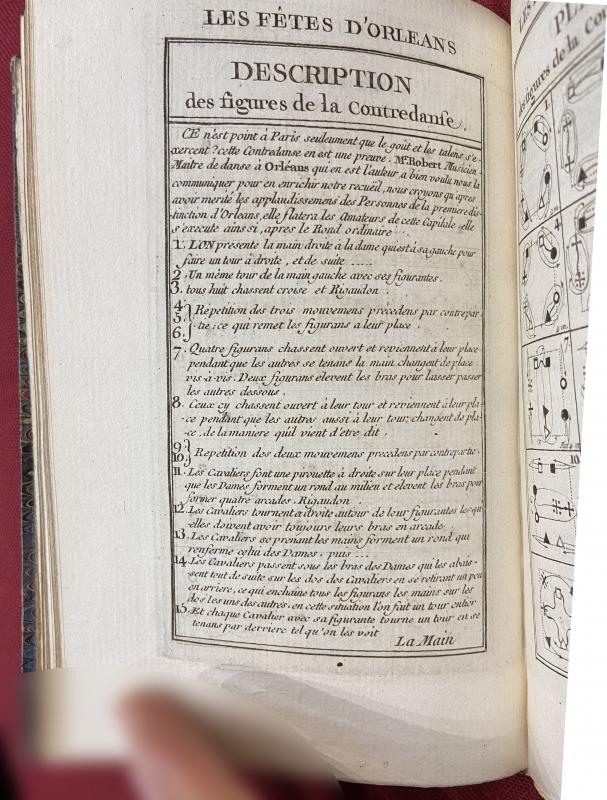 LES FÊTES D'ORLEANS
DESCRIPTION
des figures de la Contredanse.
CE n'est point à Paris seuleument que le goût et les talens, s'e-
xercent? cette Contredanse en est une preuve. Mr. Robert Musicien
Maitre de danse à Orléans qui en est l'auteur a bien voulu nous la
communiquer pour en enrichir notre recüeil, nous croyons qu'après
avoir merité les applaudissemens des Personnes de la premiere dis-
tinction d'Orleans, elle flatera les Amateurs de cette Capitale: elle
s'execute ainsi, après le Rond ordinaire
1. L'ON présente la main droite à la dame qui est à sa gauche pour
faire un tour à droite, et de suite .....
2. Un même tour de la main gauche avec ses figurantes.
3. tous huit chassent croise et Rigaudon.
4.
5. Repetition des trois mouvemens précedens par contrepar-
6. tie: ce qui remet les figurans a leur place.
7. Quatre figurans chassent ouvert et reviennent à leur place
pendant que les autres se tenans la main changent de place
vis-à-vis. Deux figurans élevent les bras pour laisser passer
les autres dessous.
8. Ceux cy chassent ouvert à leur tour et reviennent à leur pla-
ce pendant que les autres aussi à leur tour, changent de pla-
ce, de la maniere qu'il vient d'etre dit.
9.
10. Repetition des deux mouvemens precedens par contrepartie.
11. Les Cavaliers font une pirouette à droite sur leur place pendant
que les Dames forment un rond au milieu et elevent les bras pour
former quatre arcades. Rigaudon.
12. Les Cavaliers tournent a droite autour de leur figurantes les qu-
elles doivent avoir toujours leurs bras en arcade.
13. Les Cavaliers se prenant les mains forment un rond qui
renferme celui des Dames. puis ...
14. Les Cavaliers passent sous les bras des Dames qui les abais-
sent tout de suite sur les dos des Cavaliers en se retirant un peu
en arriere, ce qui enchaine tous les figurans les mains sur les
dos les uns des autres: en cette situation l'on fait un tour entier
15. Et chaque Cavalier avec sa figurante tourne un tour en se
tenans par derriere tel qu'on les voit
La Main
LES
PL
des figures de la Cont
1.
4
10